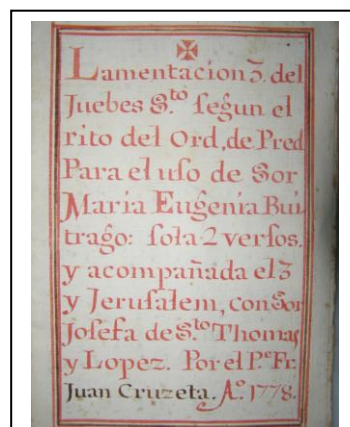 Lamentacion 3. del
Juebes S.to ſegun el
rito del Ord, de Pred
Para el uſo de Sor
Maria Eugenia Bui
trago: ſola 2 verſos.
y acompañada el 3
y Jeruſalem, con Sor
Joſefa de S.to Thomas
y Lopez. Por el P.e Fr.
Juan Cruzeta. A.o 1778.